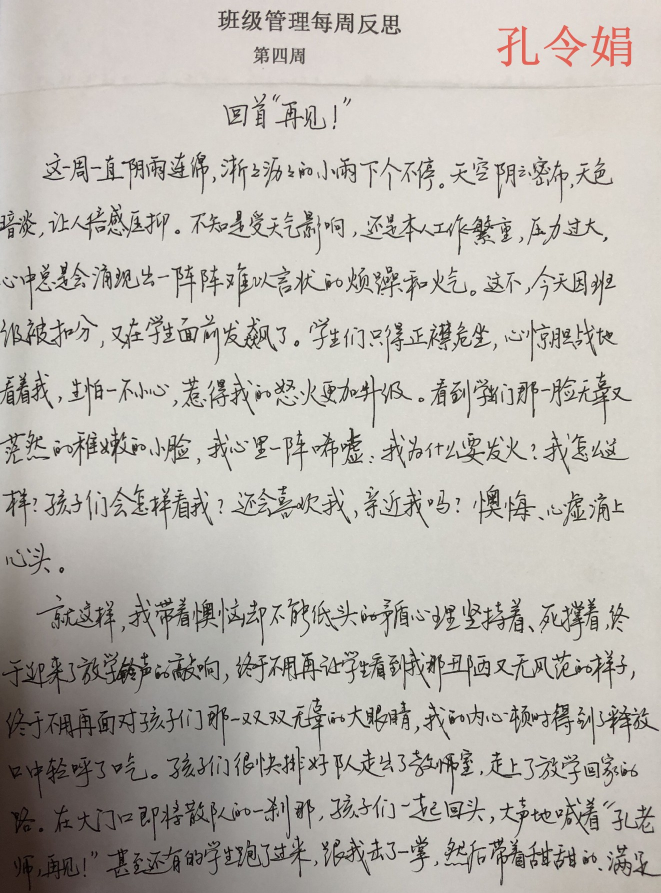 班级管理每周反思
孔令娟
第四周
回首“再见！”
这一周一直阴雨连绵，淅淅沥沥的小雨下个不停。天空阴云密布，天色
暗淡，让人倍感压抑。不知是受天气影响，还是本人工作繁重，压力过大，
心中总是会涌现出一阵阵难以言状的烦躁和火气。这不，今天因班
级被扣分，又在学生面前发飙了。学生们只得正襟危坐，心惊胆战地
看着我，生怕一不小心，惹得我的怒火更加升级。看到学生们那一脸无辜又
茫然的稚嫩的小脸，我心里一阵唏嘘：我为什么要发火？我怎么这
样？孩子们会怎样看我？还会喜欢我，亲近我吗？懊悔、心虚涌上
心头。
就这样，我带着懊恼却不能低头的矛盾心理坚持着、死撑着，终
于迎来了放学铃声的敲响，终于不用再让学生看到我那丑陋又无风范的样子，
终于不用再面对孩子们那一双双无辜的大眼睛，我的内心顿时得到了释放
口中轻呼了口气。孩子们很快排好队走出了教室，走上了放学回家的
路。在大门口即将散队的一刹那，孩子们一起回头，大声地喊着“孔老
师，再见！”甚至还有的学生跑了过来，跟我击了一掌，然后带着甜甜的、满足